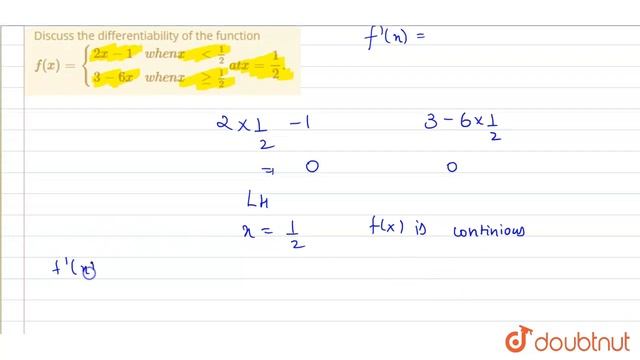 Discuss the differentiability of the function
f(x) = { 2x − 1 when x < 1/2
3 − 6x when x ≥ 1/2 at x = 1/2.
f'(x) =
2 × 1/2 − 1 3 − 6 × 1/2
= 0 0
LH
x = 1/2 f(x) is continious
f'(x)
doubtnut